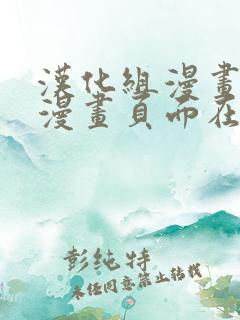 漢化組漫畫
漫畫頁而在
彭纯特
未经同意禁止转载